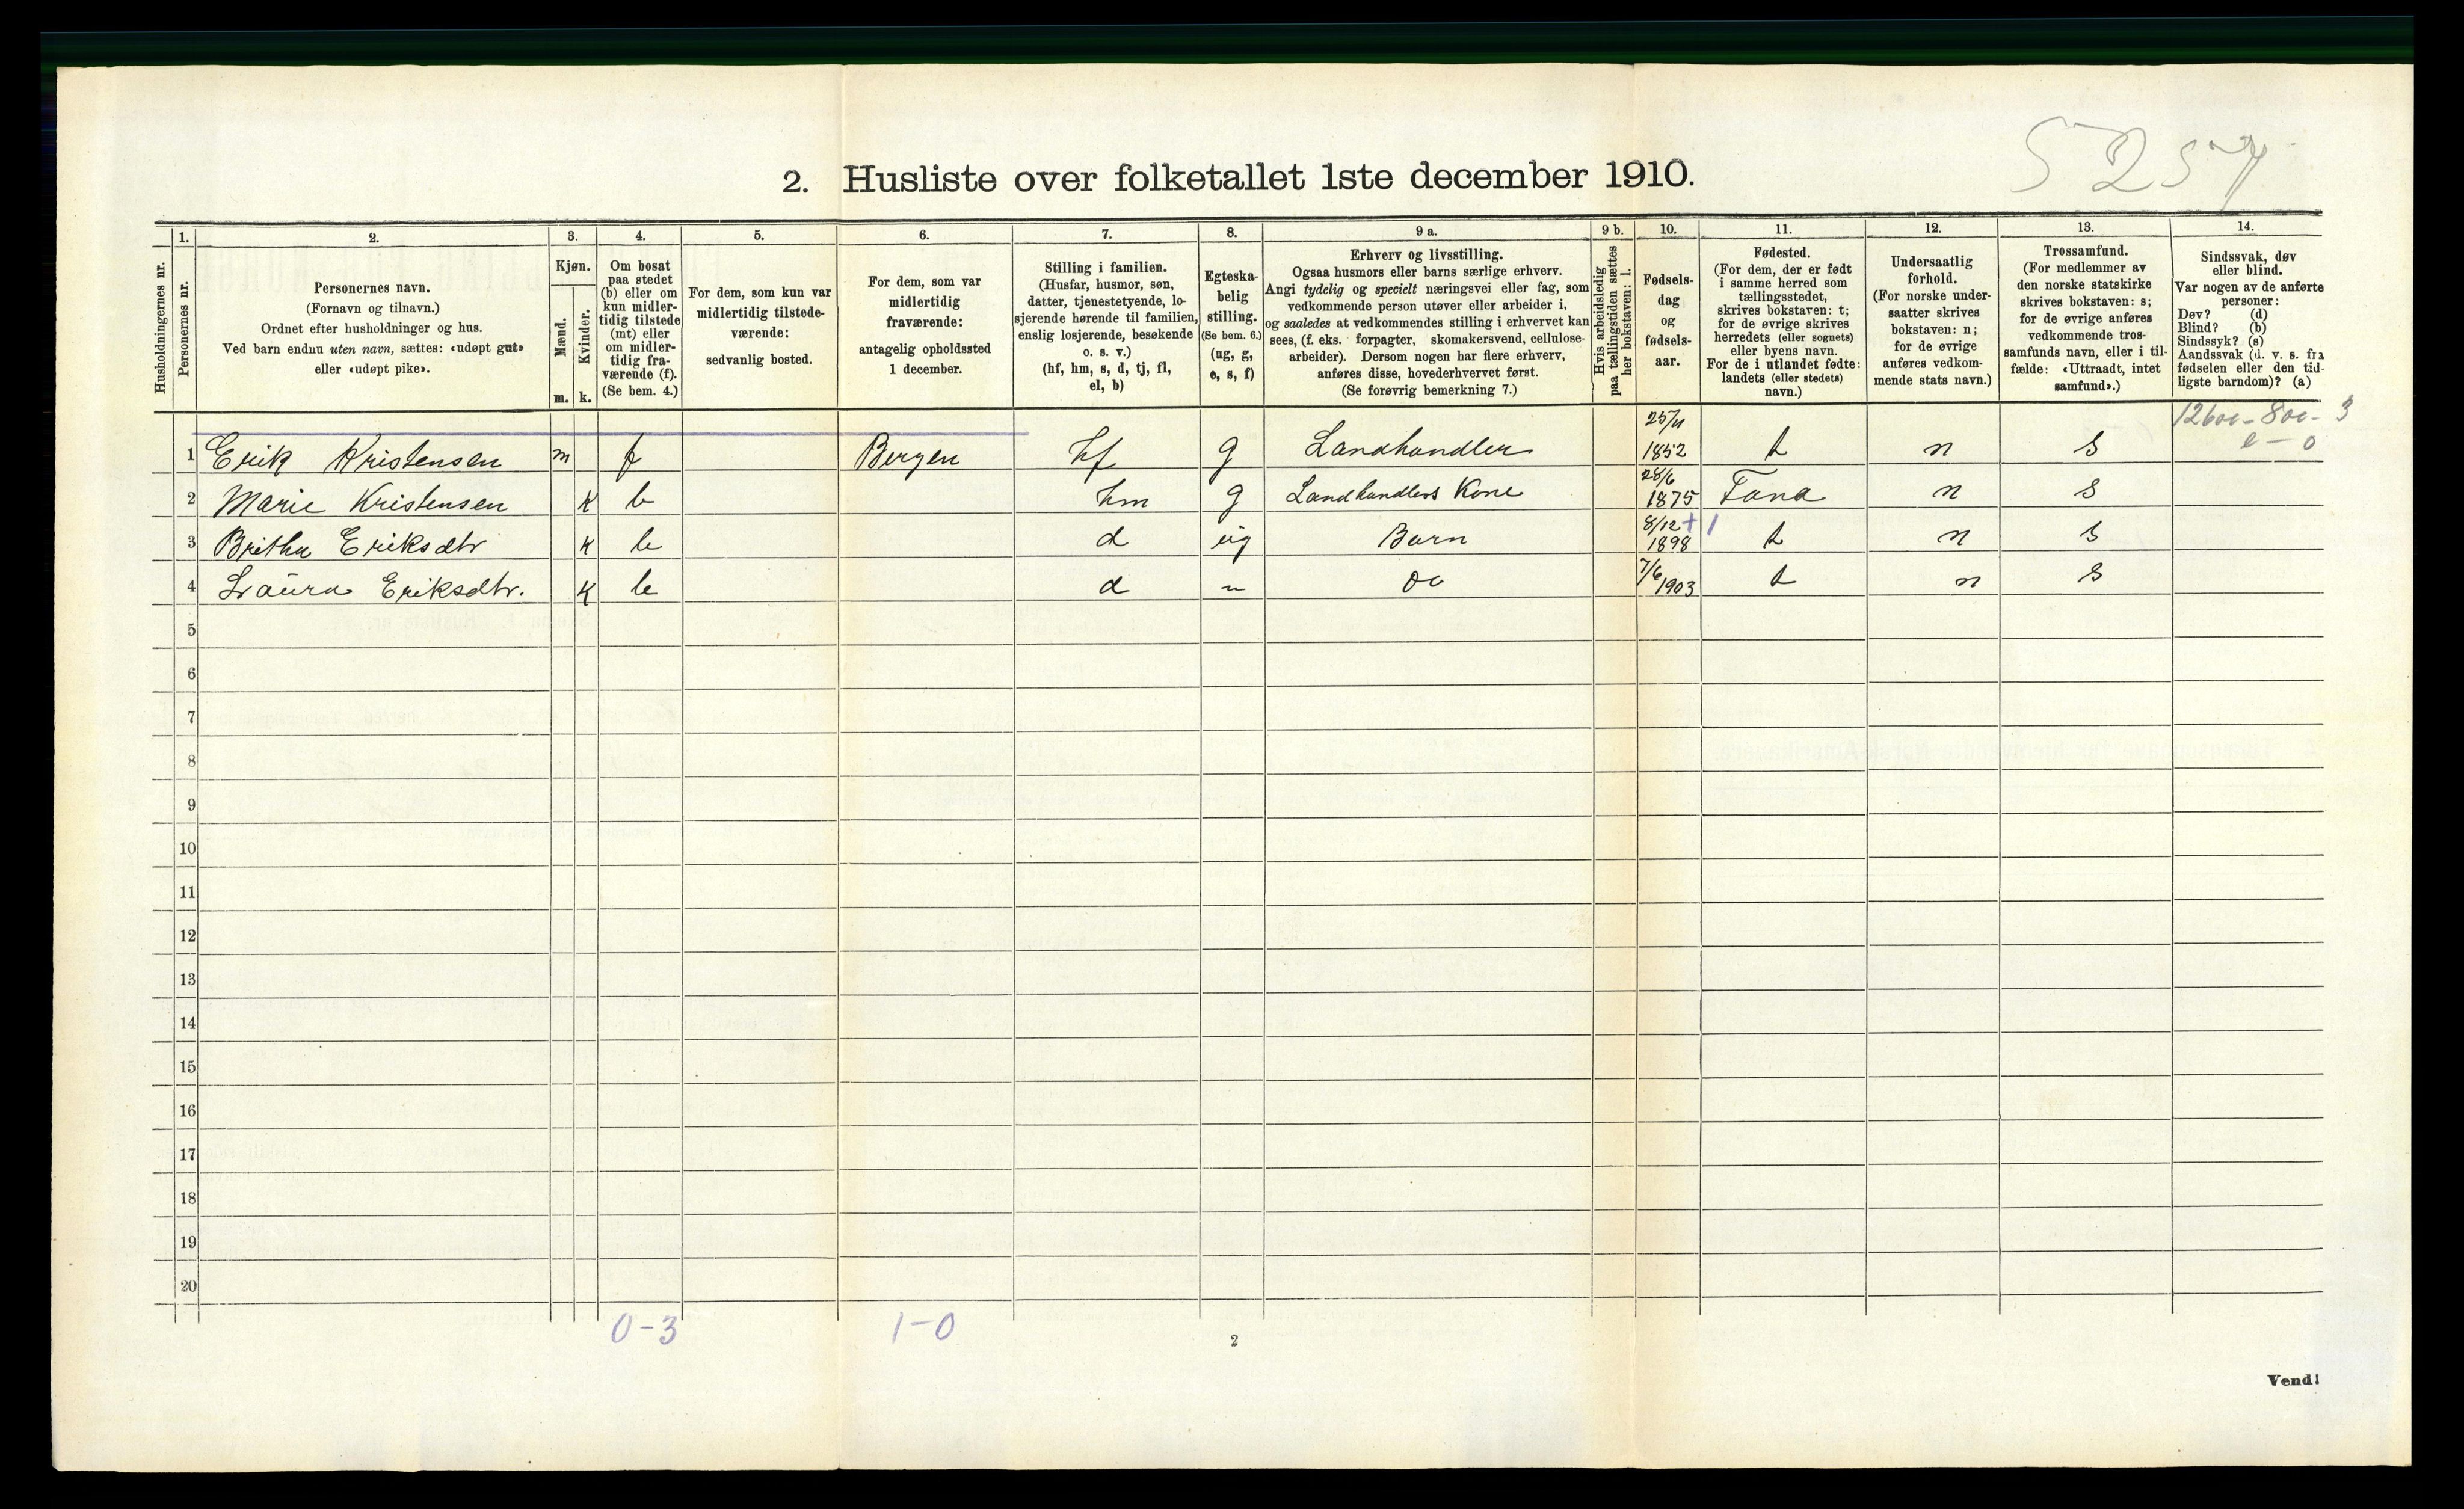 5257
2. Husliste over folketallet 1ste december 1910.
Husholdningernes nr.
1. Personernes nr.
2. Personernes navn.
(Fornavn og tilnavn.)
Ordnet efter husholdninger og hus.
Ved barn endnu uten navn, sættes: «udøpt gut»
eller «udøpt pike».
3. Kjøn.
Mænd. m.
Kvinder. k.
4. Om bosat
paa stedet
(b) eller om
kun midler-
tidig tilstede
(mt) eller
om midler-
tidig fra-
værende (f).
(Se bem. 4.)
5. For dem, som kun var
midlertidig tilstede-
værende:
sedvanlig bosted.
6. For dem, som var
midlertidig
fraværende:
antagelig opholdssted
1 december.
7. Stilling i familien.
(Husfar, husmor, søn,
datter, tjenestetyende, lo-
sjerende hørende til familien,
enslig losjerende, besøkende
o. s. v.)
(hf, hm, s, d, tj, fl,
el, b)
8. Egteska-
belig
stilling.
(Se bem. 6.)
(ug, g,
e, s, f)
9 a. Erhverv og livsstilling.
Ogsaa husmors eller barns særlige erhverv.
Angi tydelig og specielt næringsvei eller fag, som
vedkommende person utøver eller arbeider i,
og saaledes at vedkommendes stilling i erhvervet kan
sees, (f. eks. forpagter, skomakersvend, cellulose-
arbeider). Dersom nogen har flere erhverv,
anføres disse, hovederhvervet først.
(Se forøvrig bemerkning 7.)
9 b. Hvis arbeidsledig
paa tællingstiden sættes
her bokstaven: l.
10. Fødsels-
dag
og
fødsels-
aar.
11. Fødested.
(For dem, der er født
i samme herred som
tællingsstedet,
skrives bokstaven: t;
for de øvrige skrives
herredets (eller sognets)
eller byens navn.
For de i utlandet fødte:
landets (eller stedets)
navn.)
12. Undersaatlig
forhold.
(For norske under-
saatter skrives
bokstaven: n;
for de øvrige
anføres vedkom-
mende stats navn.)
13. Trossamfund.
(For medlemmer av
den norske statskirke
skrives bokstaven: s;
for de øvrige anføres
vedkommende tros-
samfunds navn, eller i til-
fælde: «Uttraadt, intet
samfund».)
14. Sindssvak, døv
eller blind.
Var nogen av de anførte
personer:
Døv? (d)
Blind? (b)
Sindssyk? (s)
Aandssvak (d. v. s. fra
fødselen eller den tid-
ligste barndom)? (a)
1 Erik Kristensen m f Bergen hf g Landhandler 1852 t n s
2 Marie Kristensen k b hm g Landhandlers Kone 28/6 1875 Fana n s
3 Britha Eriksdtr k b d ug Barn 8/12 1898 t n s
4 Laura Eriksdtr. k b d " do 7/6 1903 t n s
5
6
7
8
9
10
11
12
13
14
15
16
17
18
19
20
0-3 1-0
2
Vend!